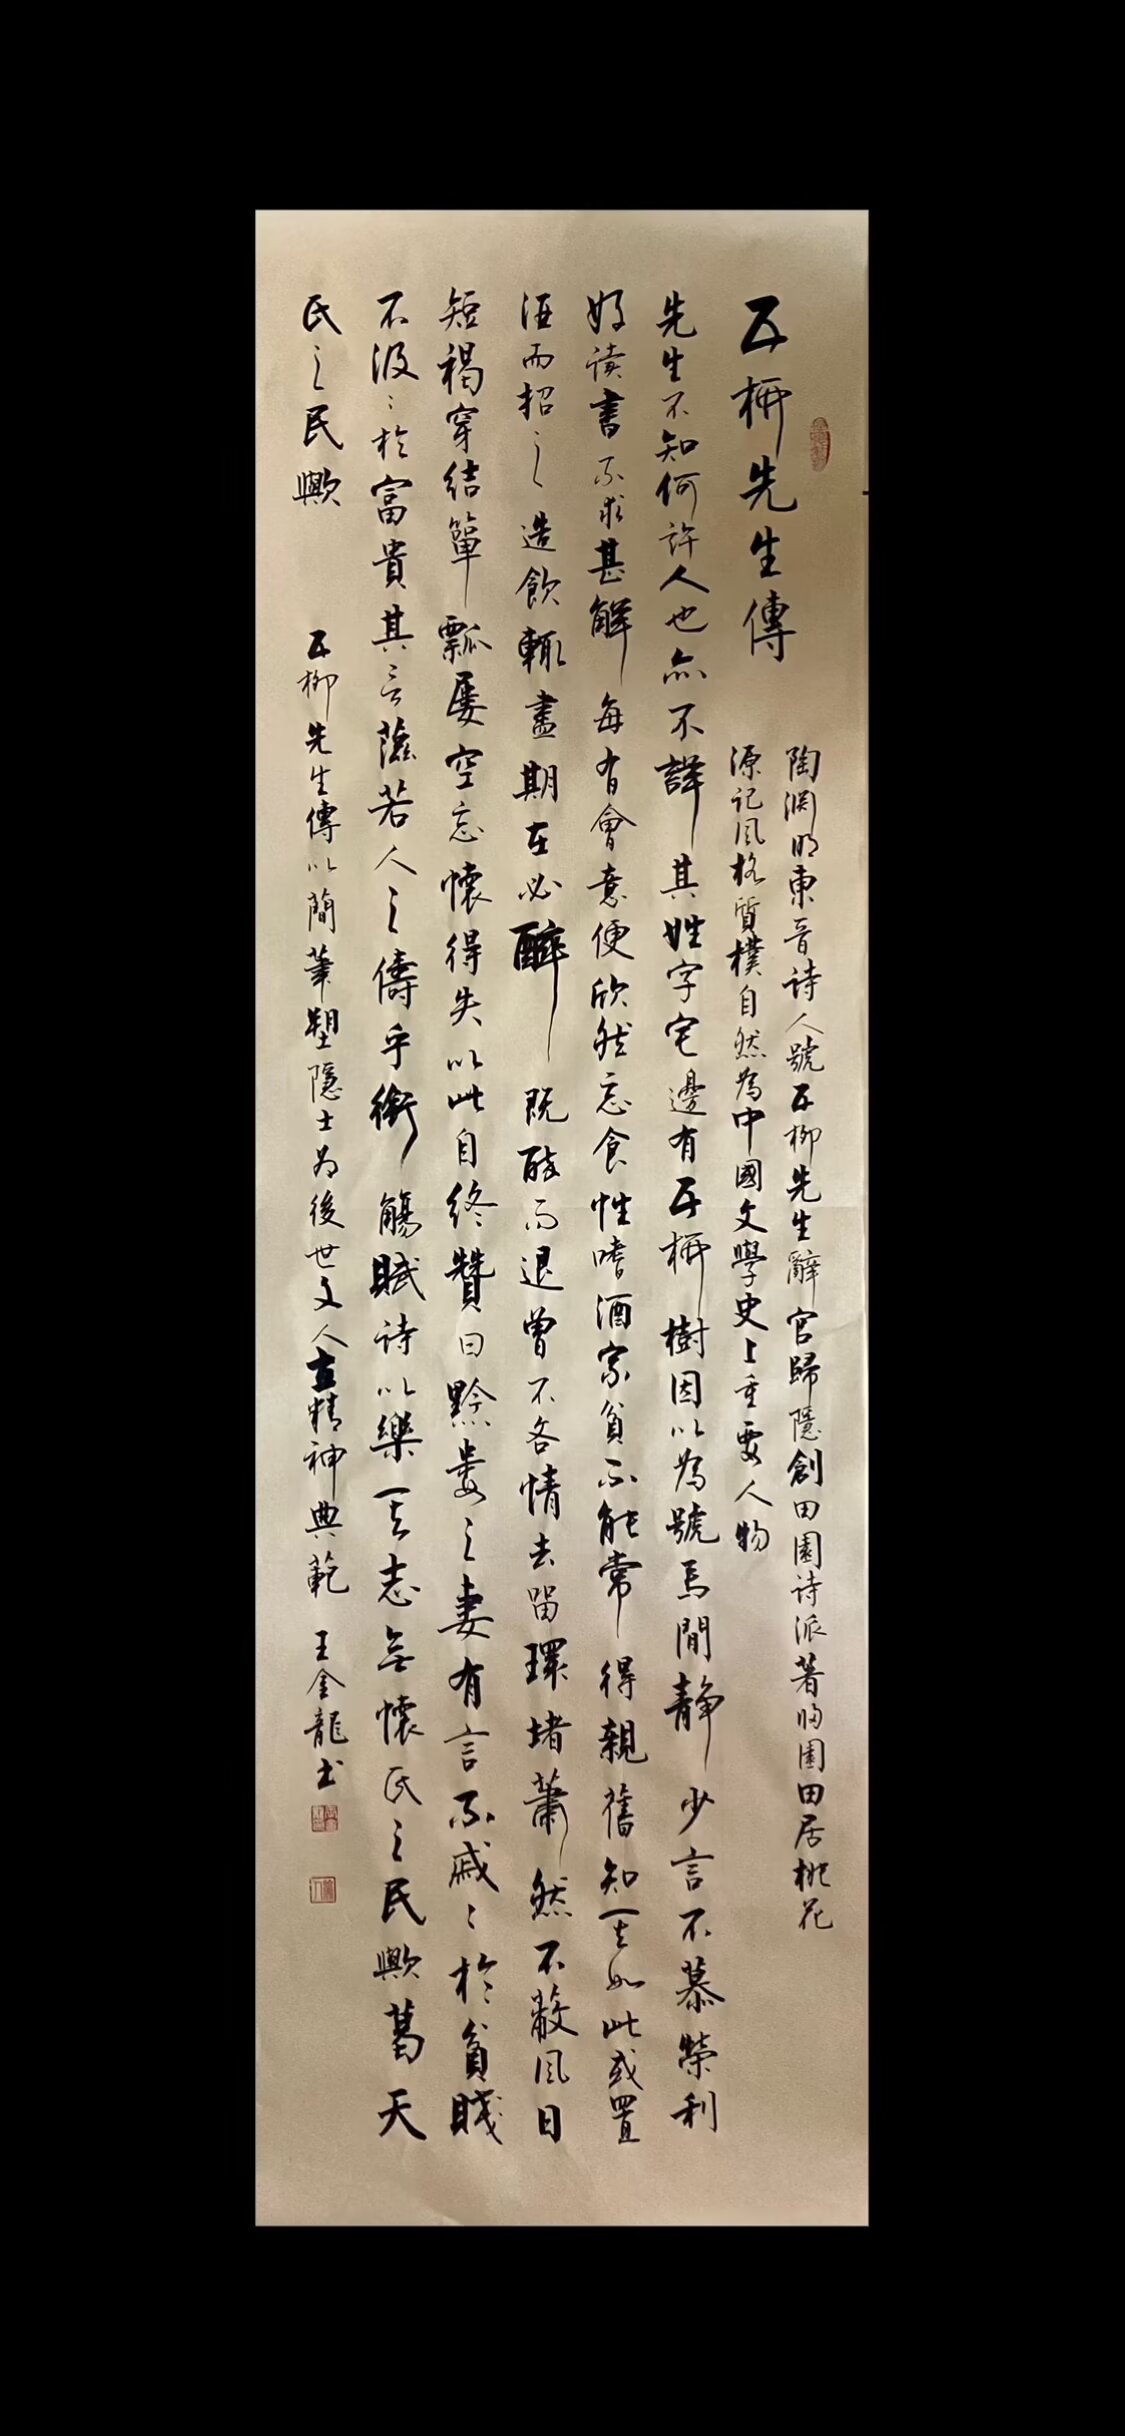 五柳先生傳
陶渊明東晉詩人號五柳先生辭官歸隱創田園詩派著歸園田居桃花
源記風格質樸自然為中國文學史上重要人物
先生不知何許人也亦不詳其姓字宅邊有五柳樹因以為號焉閒靜少言不慕榮利
好读書不求甚解每有會意便欣然忘食性嗜酒家貧不能常得親舊知其如此或置
酒而招之造飲輒盡期在必醉既醉而退曾不吝情去留環堵蕭然不蔽風日
短褐穿結簞瓢屡空忘懷得失以此自終贊曰黔婁之妻有言不戚々於貧賤
不汲々於富貴其言茲若人之儔乎銜觴賦诗以樂其志無懷氏之民歟葛天
氏之民歟
五柳先生傳以簡筆塑隱士為後世文人立精神典範 王金龍书